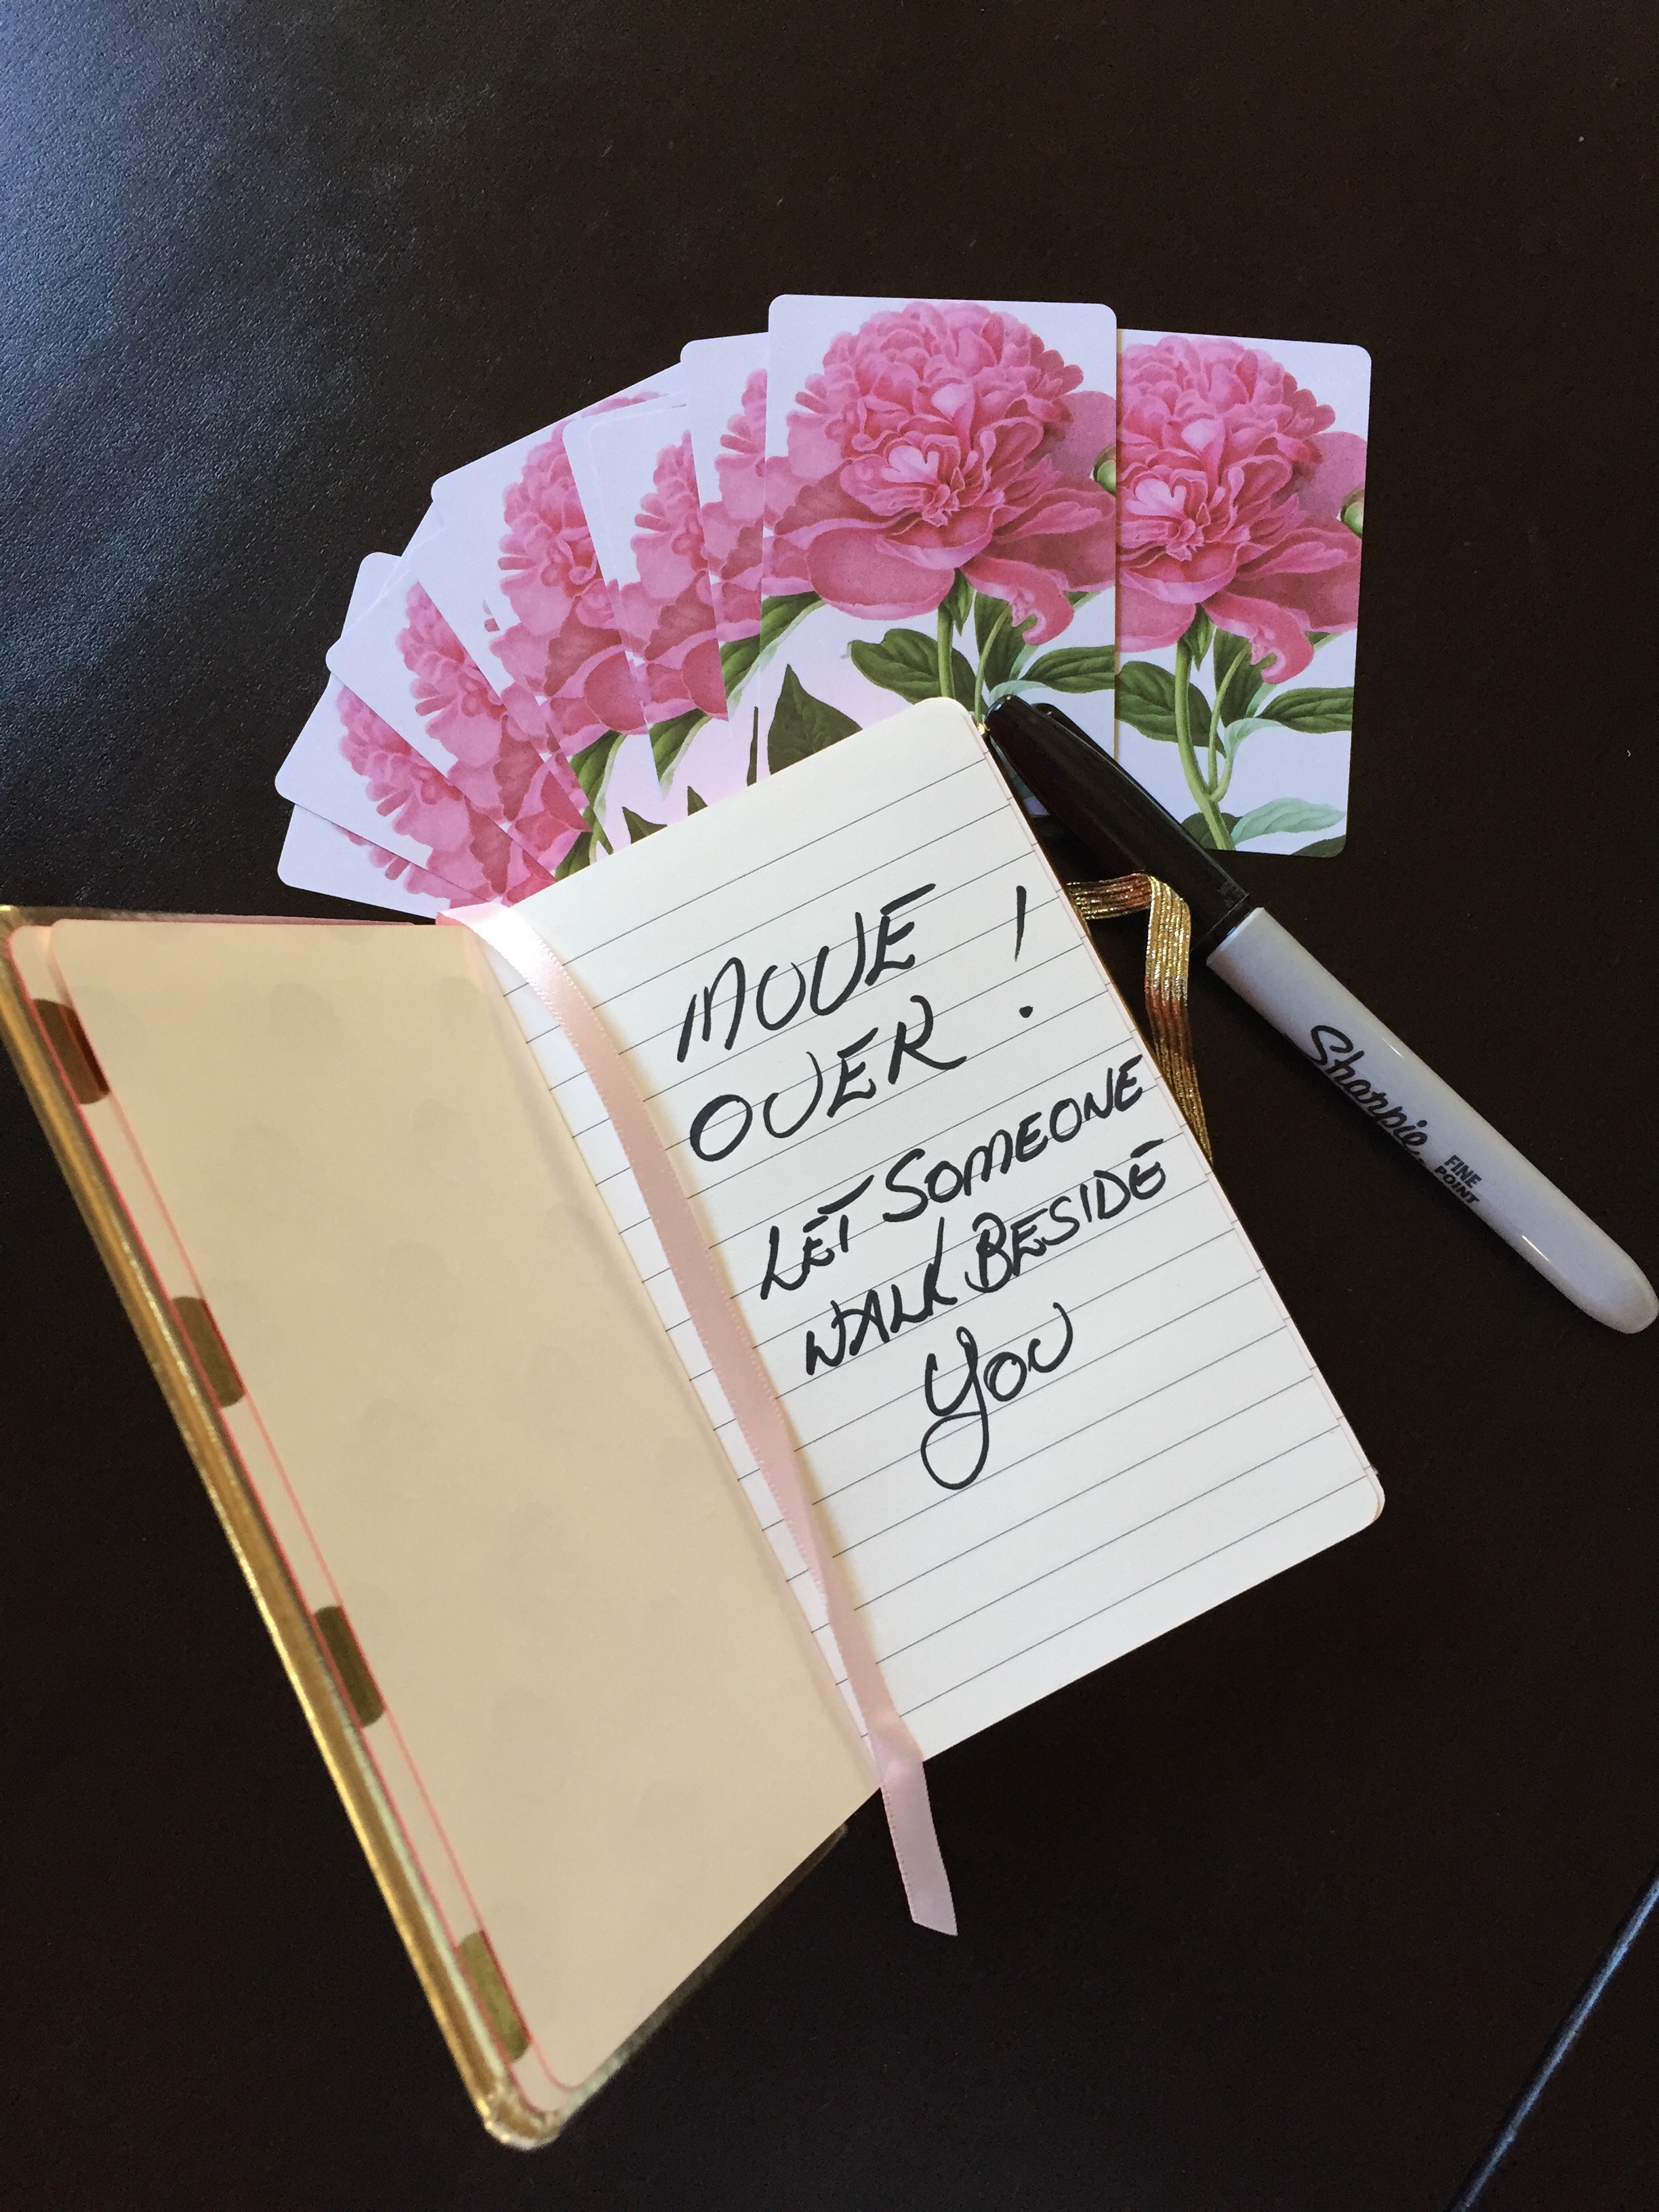 MOVE
OVER!
LET SOMEONE
WALK BESIDE
You
Sharpie
FINE
POINT